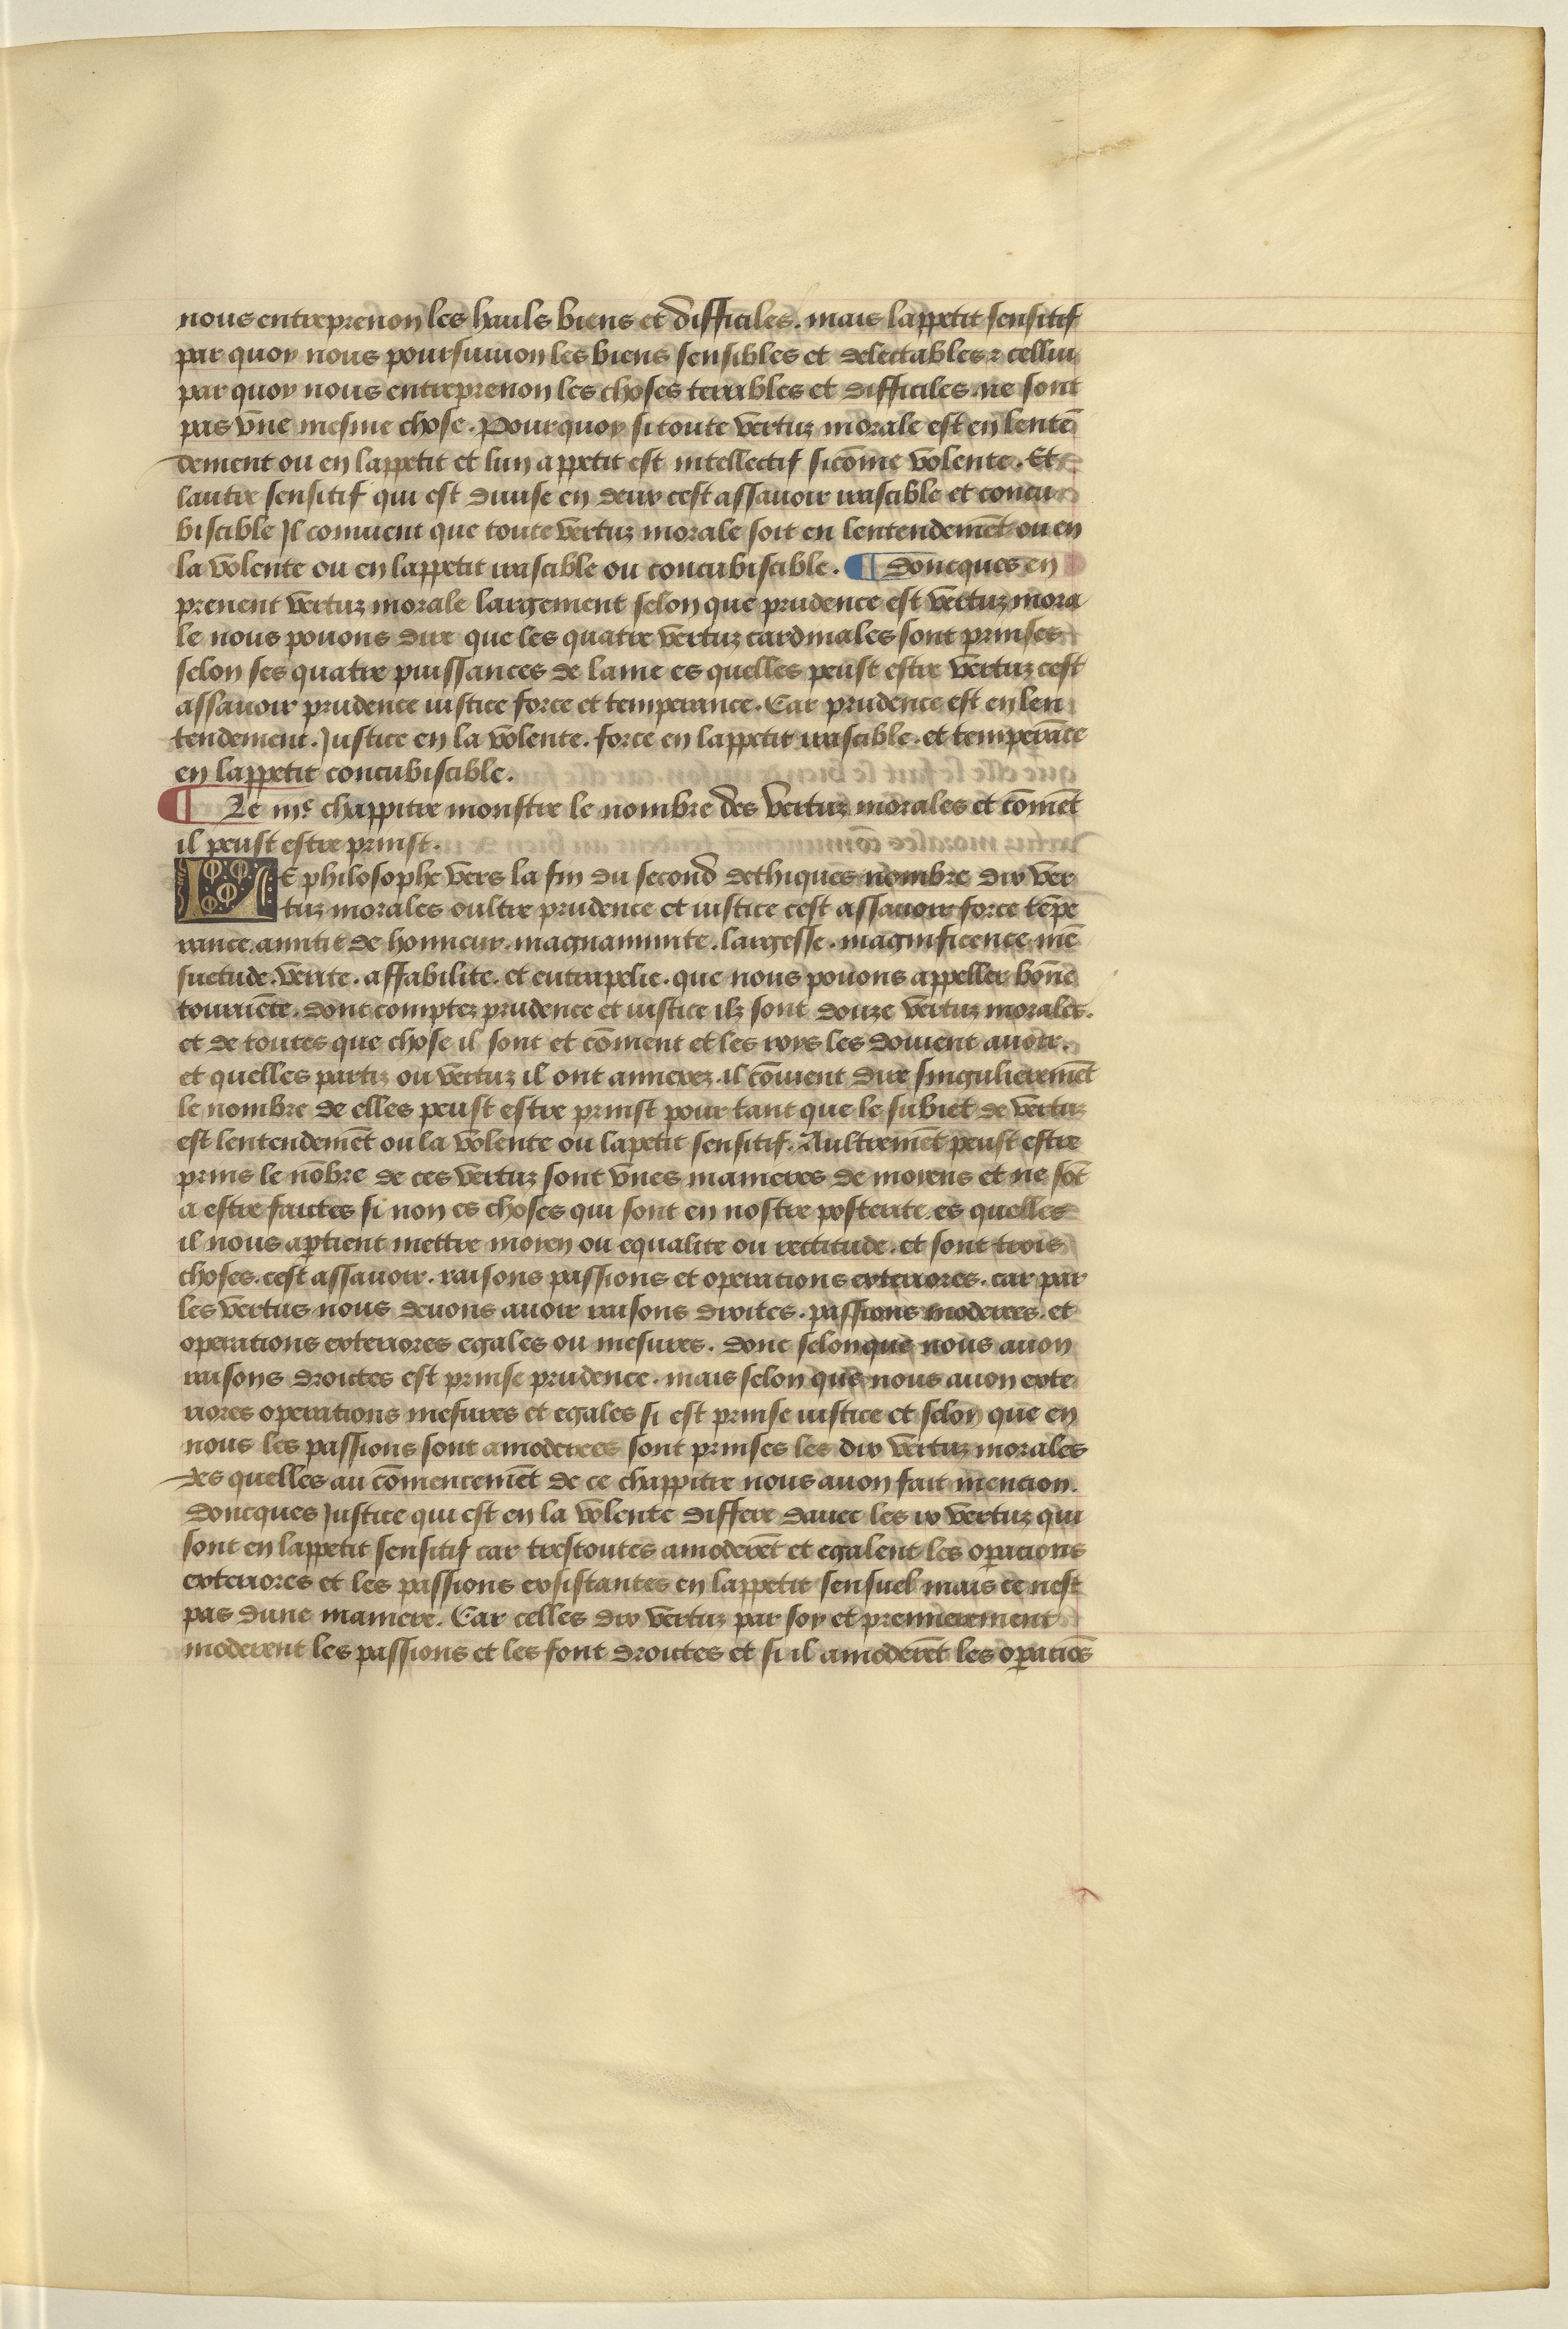 nous entreprenon les hauls biens et difficiles. mais lappetit sensitif
par quoy nous poursuiuon les biens sensibles et delectables ⁊ cellui
par quoy nous entreprenon les choses terribles et difficiles. ne sont
pas vne mesme chose. Pourquoy si toute vertuz morale est en lentē
dement ou en lappetit et lun appetit est intellectif sicōme volente. Et
lautre sensitif qui est diuise en deux cest assauoir irascible et concu
biscible Il conuient que toute vertuz morale soit en lentendemēt ou en
la volente ou en lappetit irascible ou concubiscible. ¶ doncques en
prenent vertuz morale largement selon que prudence est vertuz mora
le nous pouons dire que les quatre vertuz cardinales sont prinses
selon ses quatre puissances de lame es quelles peust estre vertuz cest
assauoir prudence iustice force et temperance. Car prudence est en len
tendement. Justice en la volente. force en lappetit irascible. et temperāce
en lappetit concubiscible.
¶ Le iiie chappitre monstre le nombre des vertuz morales et cōmēt
il peust estre prinst.
LE philosophe vers la fin du second dethiques nombre dix ver
tuz morales oultre prudence et iustice cest assauoir force tēpe
rance. amitie de honneur. magnanimite. largesse. magnificence. mē
suetude. verite. affabilite. et eutrapelie. que nous pouons appeller bōne
tournēte. dont comptez prudence et iustice ilz sont douze vertuz morales.
et de toutes que chose il sont et cōment et les roys les doiuent auoir.
et quelles partiz ou vertuz il ont annexez. il cōuient dire singulieremēt
le nombre de elles peust estre prinst pour tant que le subiet de vertuz
est lentendemēt ou la volente ou lapetit sensitif. Aultremēt peust estre
prins le nōbre de ces vertuz sont vnes manieres de moyens et ne sōt
a estre faictes si non es choses qui sont en nostre posterite. es quelles
il nous aptient mettre moyen ou equalite ou rettitude. et sont trois
choses. cest assauoir. raisons passions et operations exteriores. car par
les vertus nous deuons auoir raisons droites. passions moderees. et
operations exteriores egales ou mesures. donc selon que nous auon
raisons droictes est prinse prudence. mais selon que nous auon exte
riores operations mesures et egales si est prinse iustice et selon que en
nous les passions sont amoderees sont prinses les dix vertuz morales
des quelles au cōmencemēt de ce chappitre nous auon fait mention.
doncques Justice qui est en la volente differe dauec les ix vertuz qui
sont en lappetit sensitif car trestoutes amoderēt et egalent les opacions
exteriores et les passions exsistantes en lappetit sensuel mais ce nest
pas dune maniere. Car celles dix vertuz par soy et premierement
moderent les passions et les font droictes et si il amoderēt les opaciōs